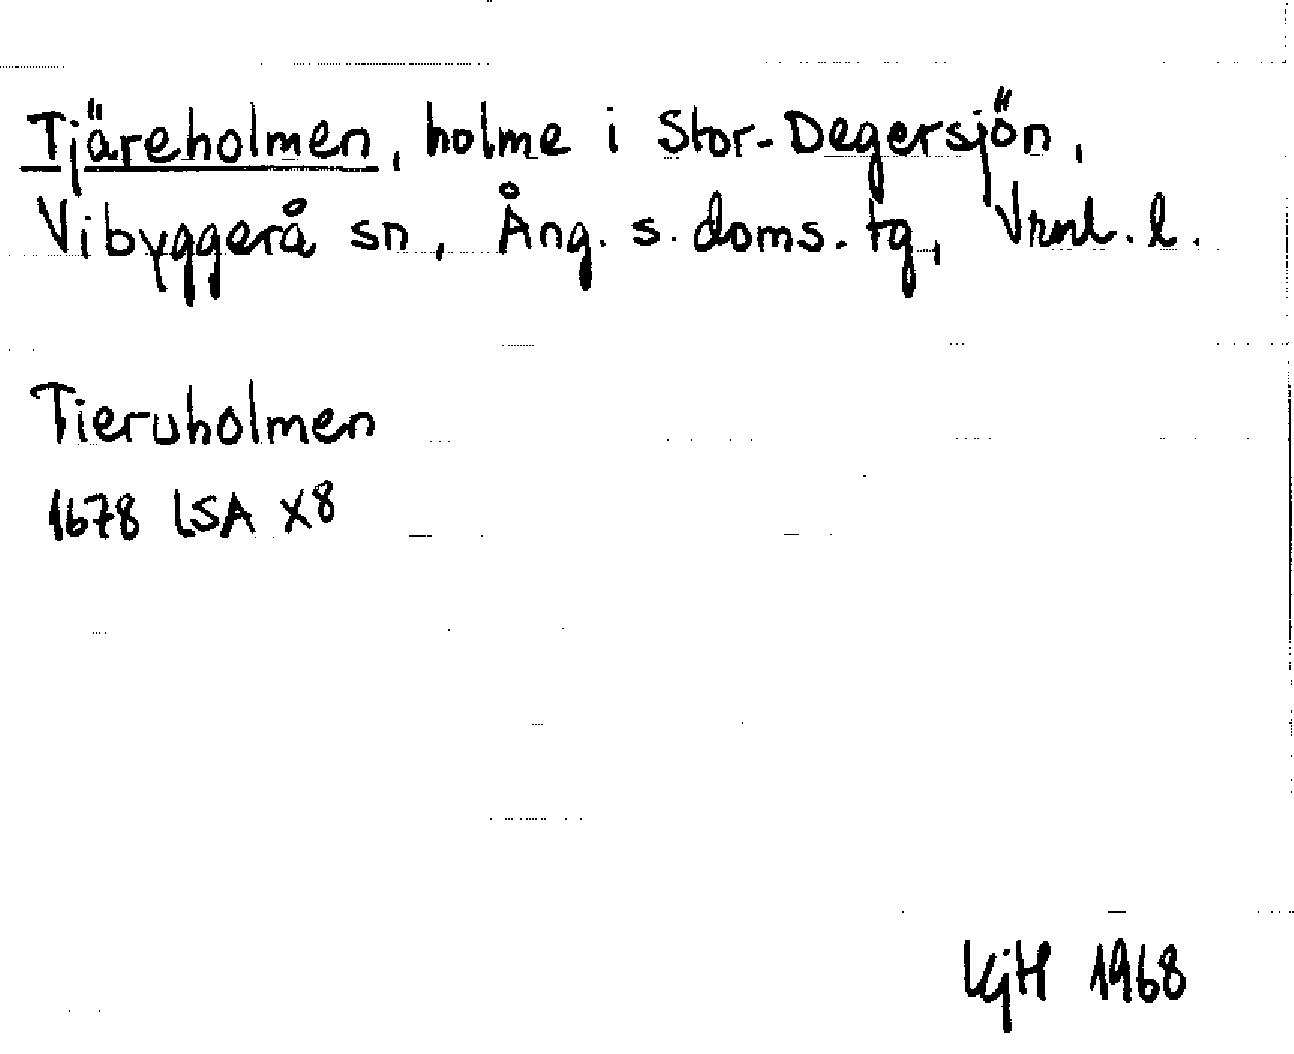 Tjäreholmen, holme i Stor-Degersjön,
Vibyggerå sn, Ång. s. doms. tg, Vrnl. l.
Tieruholmen
1678 LSA X8
KjH 1968